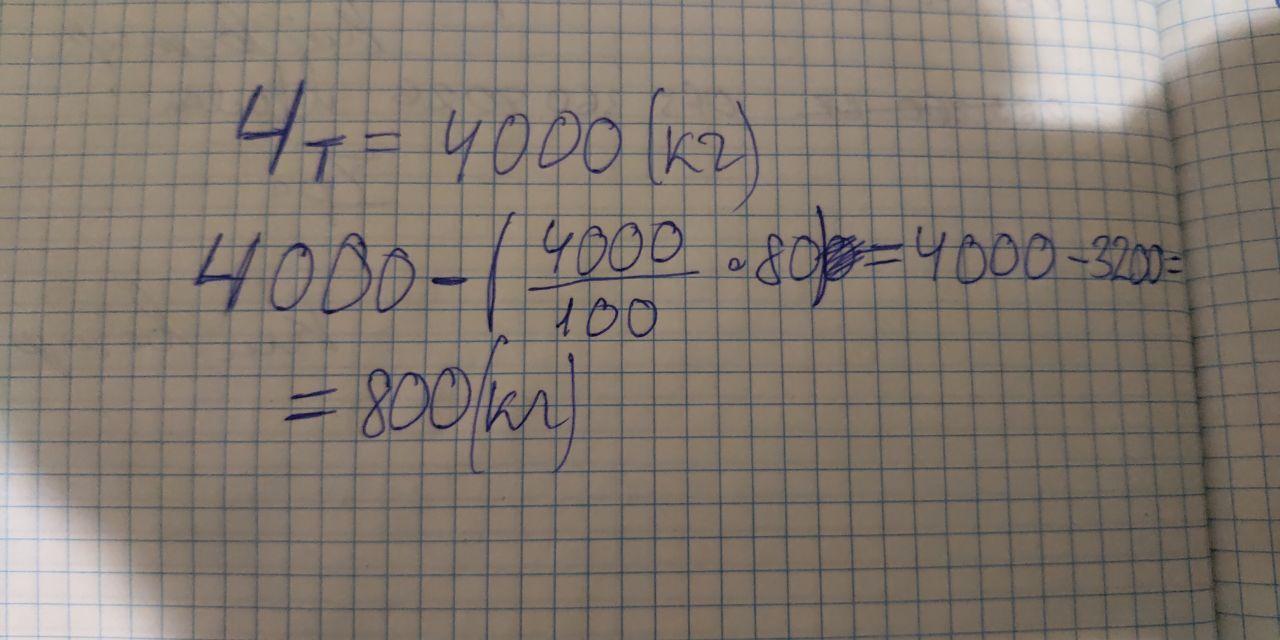 4т = 4000 (кг)
4000 - (4000/100 · 80) = 4000 - 3200 =
= 800 (кг)